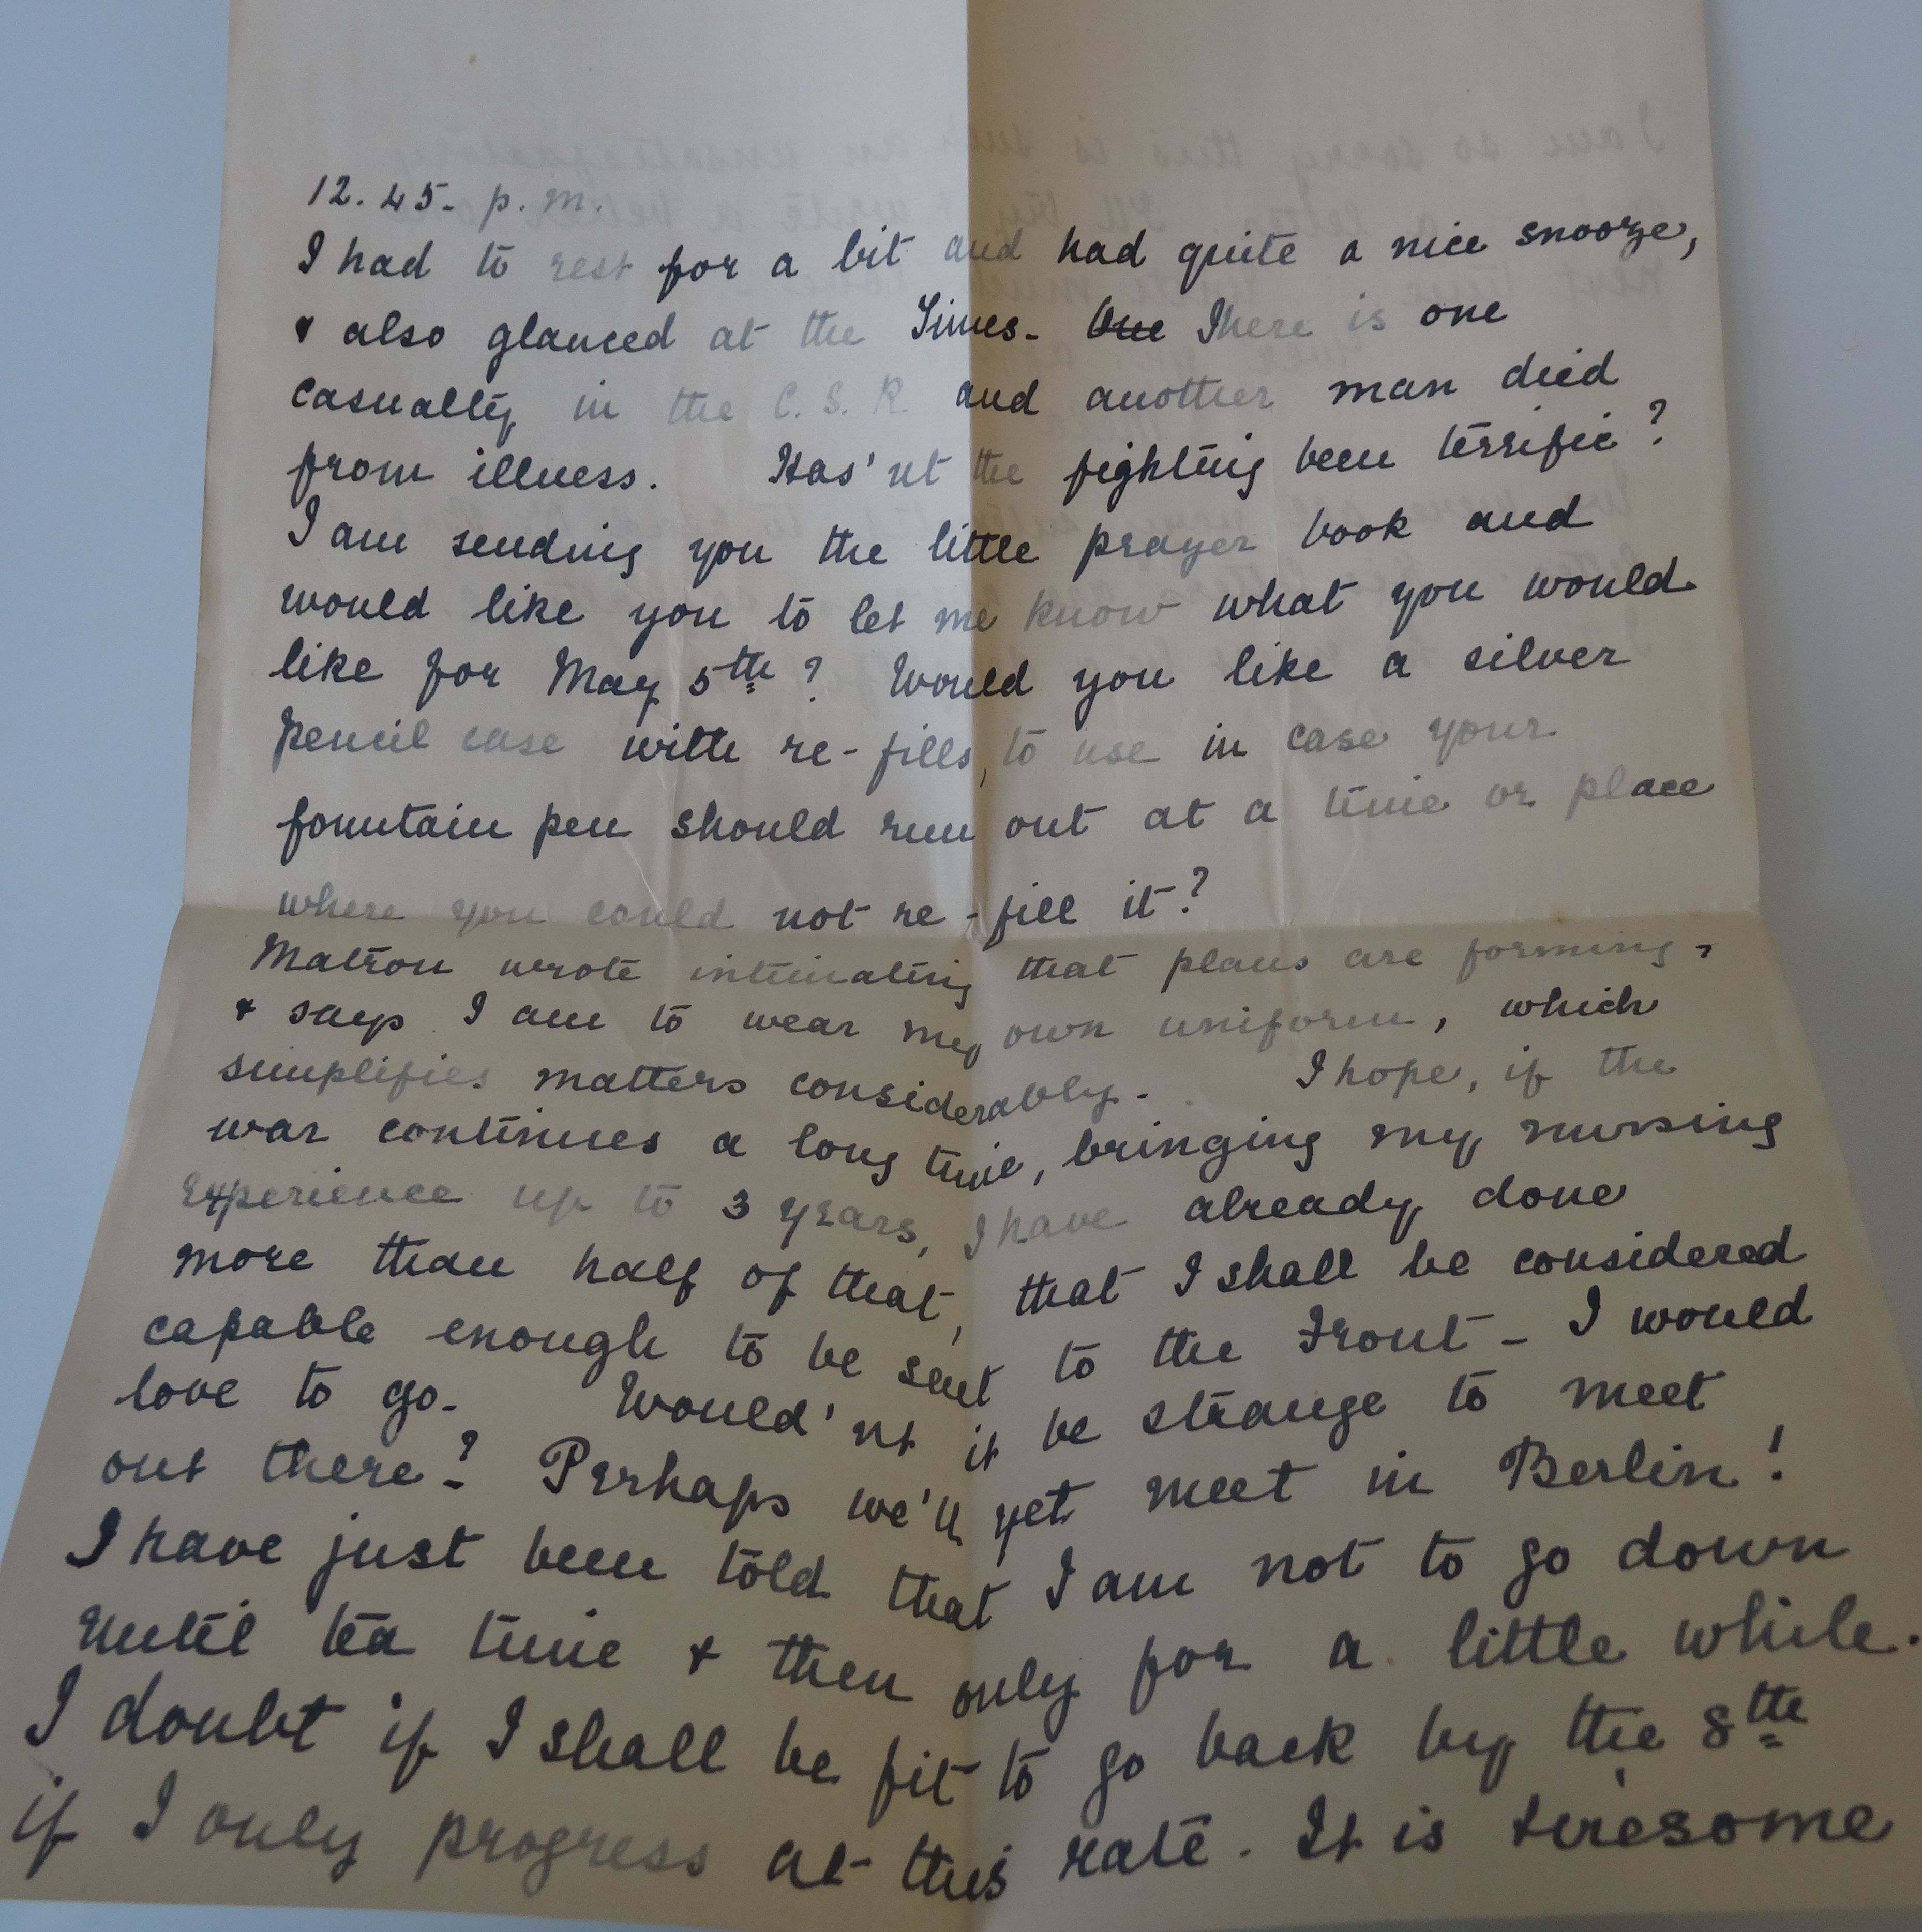 12.45. p.m.
I had to rest for a bit and had quite a nice snooze,
& also glanced at the Times. One There is one
casualty in the C.S.R. and another man died
from illness. Has'nt the fighting been terrific?
I am sending you the little prayer book and
would like you to let me know what you would
like for May 5th? Would you like a silver
pencil case with re-fills, to use in case your
fountain pen should run out at a time or place
where you could not re-fill it?
Matron wrote intimating that plans are forming,
& says I am to wear my own uniform, which
simplifies matters considerably. I hope, if the
war continues a long time, bringing my nursing
experience up to 3 years, I have already done
more than half of that, that I shall be considered
capable enough to be sent to the Front - I would
love to go. Would'nt it be strange to meet
out there? Perhaps we'll yet meet in Berlin!
I have just been told that I am not to go down
until tea time & then only for a little while.
I doubt if I shall be fit to go back by the 8th
if I only progress at this rate. It is tiresome